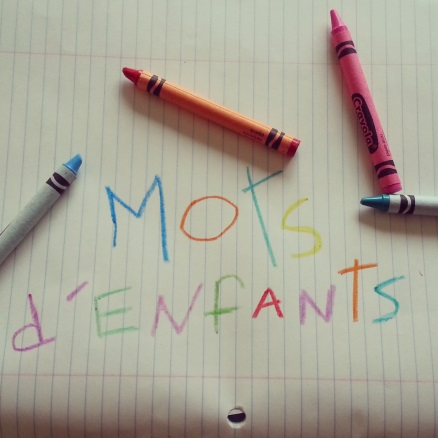 MOTS
d'ENfANTS
Crayola